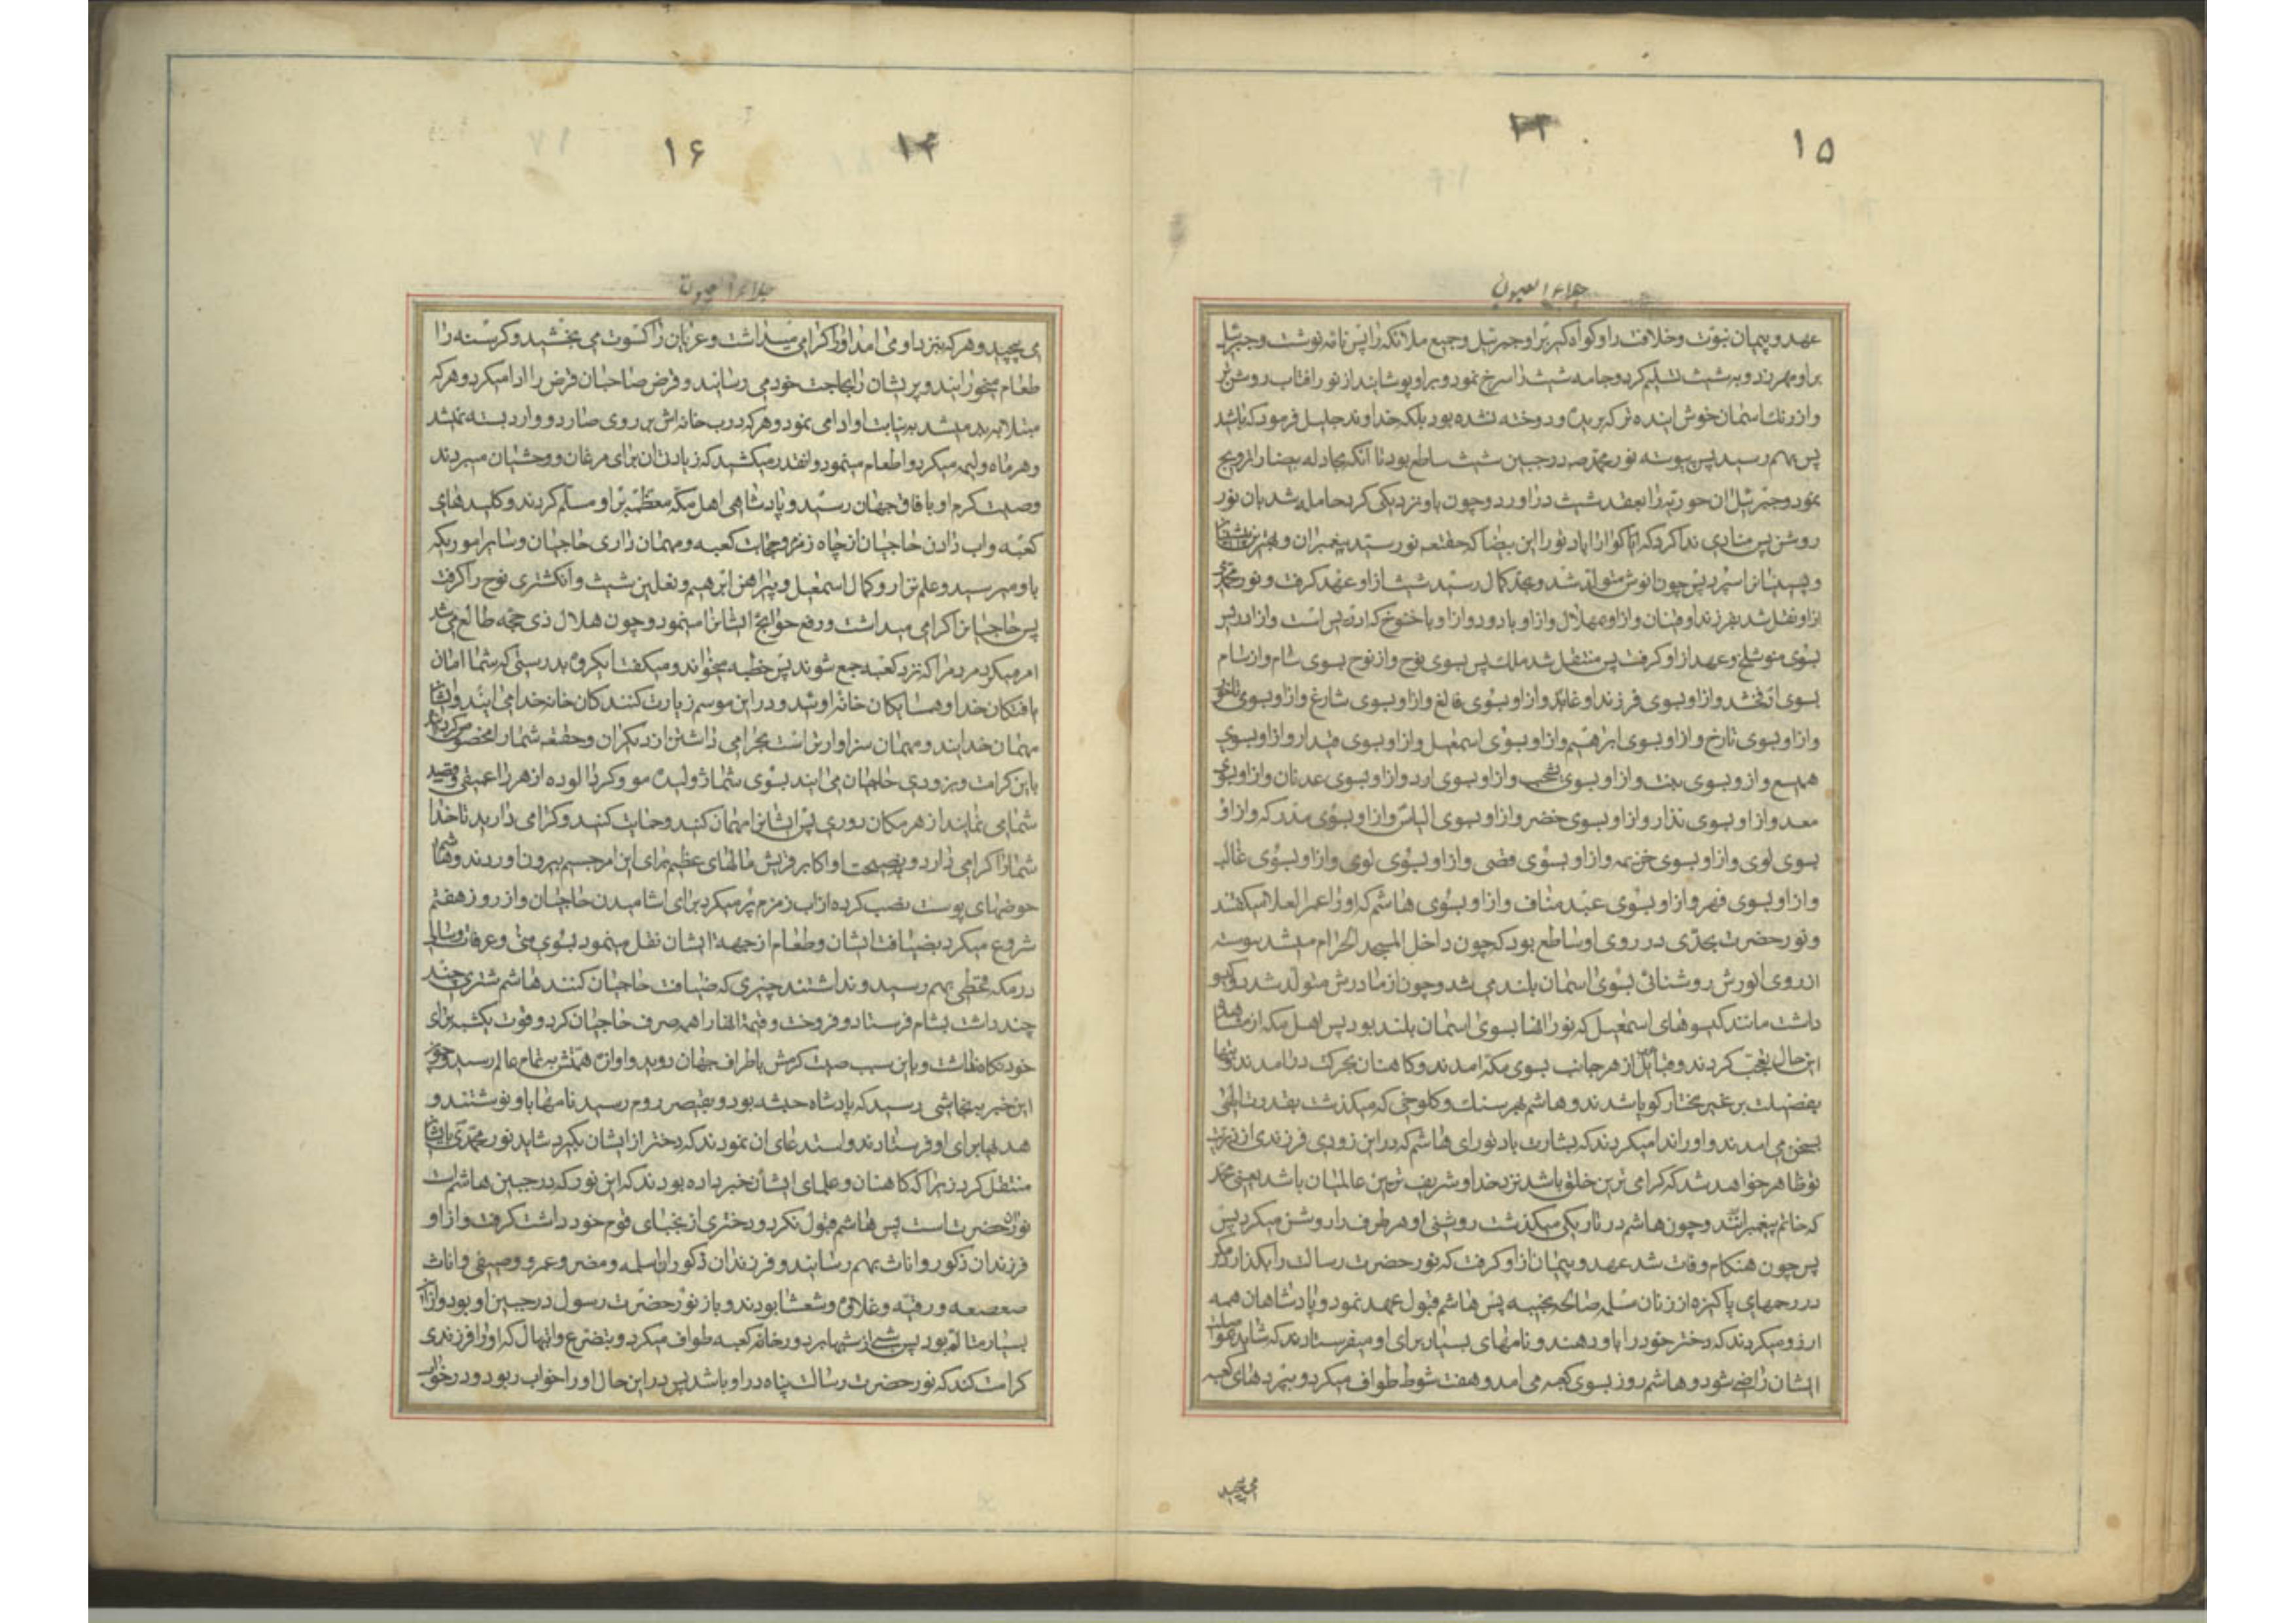 ۱۵
۱۳
جلاء العیون
عهد و پیمان نبوت و خلافت را و کواه کبر بر او جبرئیل و جمیع ملائکه را پس نامه نوشت و جبرئیل
بر او مهر زد و به شیث تسلیم کرد و جامه شیث را سرخ نمود و بر او پوشانید از نور افتاب روشن تر
و از رنک اسمان خوش اینده تر که بریده و دوخته نشده بود بلکه خداوند جلیل فرمود که باشد
پس بهم رسید پس پیوسته نور محمد ص در جبین شیث ساطع بود تا انکه بیضا را تزویج
نمود و جبرئیل ان حوریه را بعقد شیث در اورد و چون باو نزدیکی کرد حامله شد بان نور
روشن پس منادی ندا کرد که کوارا باد نور این بیضا که حقتعه نور سید پیغمبران و بهترین
پس چون انوش متولد شد و بحد کمال رسید شیث از او عهد کرفت و نور محمد
از او نقل شد بفرزند او قینان و از او مهلائل و از او یارد و از او باخنوخ که ادریس است و از ادریس
بسوی متوشلخ و عهد از او کرفت پس منتقل شد بملک پس بسوی نوح و از نوح بسوی سام و از سام
بسوی ارفخشد و از او بسوی فرزند او عابر و از او بسوی فالغ و از او بسوی شارغ و از او بسوی ناخور
و از او بسوی تارخ و از او بسوی ابراهیم و از او بسوی اسمعیل و از او بسوی قیدار و از او بسوی
همیسع و از و بسوی نبت و از او بسوی یشحب و از او بسوی ادد و از او بسوی عدنان و از او بسوی
معد و از او بسوی نذار و از او بسوی خضر و از او بسوی الیاس و از او بسوی مدرکه و از او
بسوی لوی و از او بسوی خزیمه و از او بسوی قصی و از او بسوی لوی و از او بسوی غالب
و از او بسوی فهر و از او بسوی عبد مناف و از او بسوی هاشم که او را عمرالعلا میکفتند
و نور حضرت محمدی در روی او ساطع بود که چون داخل المسجد الحرام میشد پیوسته
از روی انورش روشنائی بسوی اسمان بلند می شد و چون از مادرش متولد شد دو کیسو
داشت مانند کیسوهای اسمعیل که نور انها بسوی اسمان بلند بود پس اهل مکه از مشاهده
این حال تعجب کردند و قبایل از هر جانب بسوی مکه امدند و کاهنان بحرکت در امدند
بفضیلت بر غیر مختار کویا شدند و هاشم بهر سنک و کلوخی که میکذشت بقدرت الهی
بسخن می امدند و او را ندا میکردند که بشارت باد تو را ای هاشم که در این زودی فرزندی از ذریت
تو ظاهر خواهد شد که کرامی ترین خلق باشد نزد خدا و شریف ترین عالمیان باشد یعنی محمد
که خاتم پیغمبرانند و چون هاشم در تاریکی میکذشت روشنی او هر طرف را روشن میکرد پس
پس چون هنکام وفات شد عهد و پیمان از او کرفت که نور حضرت رسالت را نکذارد مکر
در رحمهای پاکیزه از زنان مسلمه صالحه نجیبه پس هاشم قبول عهد نمود و پادشاهان همه
ارزو میکردند که دختر خود را باو دهند و نامهای بسیار برای او میفرستادند که شاید
ایشان راضی شود و هاشم روز بسوی کعبه می امد و هفت شوط طواف میکرد و بپردهای کعبه
می پیچید
۱۶
۱۴
جلاء العیون
می پیچید و هر که بنزد او می امد او را کرامی میداشت و عریان را کسوت می بخشید و کرسنه را
طعام میخورانید و پریشان را بحاجت خود می رسانید و قرض صاحبان قرض را ادا میکرد و هر که
مبتلا میشد به نیابت او ادا می نمود و هرکه درب خانه اش بر روی صادر و وارد بسته نمیشد
و هر ماه ولیمه میکرد و اطعام مینمود و انقدر میکشید که زیادتان برای مرغان و وحشیان میبردند
و صیت کرم او بافاق جهان رسید و پادشاهی اهل مکه معظمه بر او مسلم کردند و کلیدهای
کعبه و اب دادن حاجیان از چاه زمزم و حجابت کعبه و مهمان داری حاجیان و سایر امور مکه
باو میرسید و علم نزار و کمان اسمعیل و پیراهن ابرهیم و نعلین شیث و انکشتری نوح را کرفت
پس حاجیانرا کرامی میداشت و رفع حوایج ایشانرا مینمود و چون هلال ذی حجه طالع می شد
امر میکرد مردم را که نزد کعبه جمع شوند پس خطبه میخواند و میکفت ایکروه بدرستی که شما امان
یافتکان خدا و همسایکان خانه اوئید و در این موسم زیارت کنندکان خانه خدا می ایند و ایشان
مهمان خدایند و مهمان سزاوارتر است بکرامی داشتن از دیکران و حقتعه شما را مخصوص کردانید
باین کرامت و بزودی حاجیان می ایند بسوی شما ژولیده مو و کرد الوده از هر درا عمیقی و قصد
شما می نمایند از هر مکان دوری پس ایشانرا مهمان کنید و حمایت کنید و کرامی دارید تا خدا
شما را کرامی دارد و بنصیحت او اکابر قریش مالهای عظیم برای این امر جسیم بیرون اوردند و هاشم
حوضهای پوست نصب کرده از اب زمزم پر میکرد برای اشامیدن حاجیان و از روز هفتم
شروع میکرد بضیافت ایشان و طعام از جهه ایشان نقل مینمود بسوی منی و عرفات و سالی
در مکه قحطی بهم رسید و نداشتند چیزی که ضیافت حاجیان کنند هاشم شتری چند
چند داشت بشام فرستاد و فروخت و قیمة انها را همه صرف حاجیان کرد و قوت یکشبه برای
خود نکاه نداشت و باین سبب صیت کرمش باطراف جهان روید و اوازه همتش به تمام عالم رسید و چون
این خبر به نجاشی رسید که پادشاه حبشه بود و بقیصر روم رسید نامها باو نوشتند و
هدیها برای او فرستادند و استدعای ان نمودند که دختر از ایشان بکیرد شاید نور محمدی بایشان
منتقل کردد زیرا که کاهنان و علمای ایشان خبر داده بودند که این نور که در جبین هاشم است
نور ان حضرت است پس هاشم قبول نکرد و دختری از نجبای قوم خود داشت کرفت و از او
فرزندان ذکور و اناث بهم رسانید و فرزندان ذکور ان اسلمه و مضر و عمرو و صیفی و اناث
صعصعه و رقیه و خلاده و شعشا بودند و باز نور حضرت رسول در جبین او بود و از ان
بسیار متالم بود پس شبی از شبها بر دور خانه کعبه طواف میکرد و بتضرع و ابتهال که او را فرزندی
کرامت کند که نور حضرت رسالت پناه در او باشد پس در این حال او را خواب ربود و در خواب